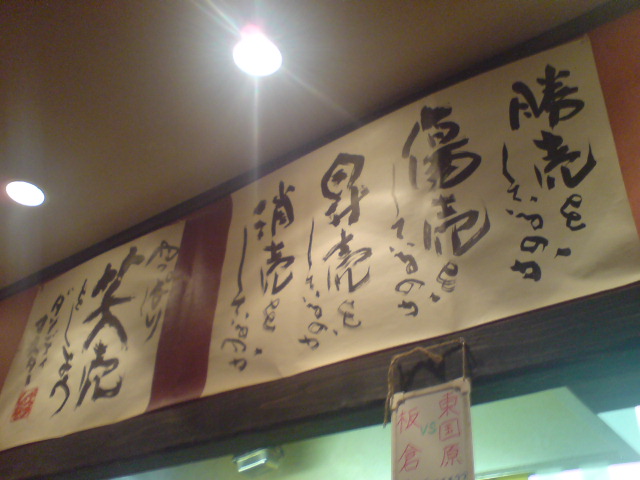 勝売を、
しているのか
傷売を、
しているのか
昇売を、
しているのか
消売を、
しているのか
やっぱり
笑売
でしょう
東国原
vs
板倉